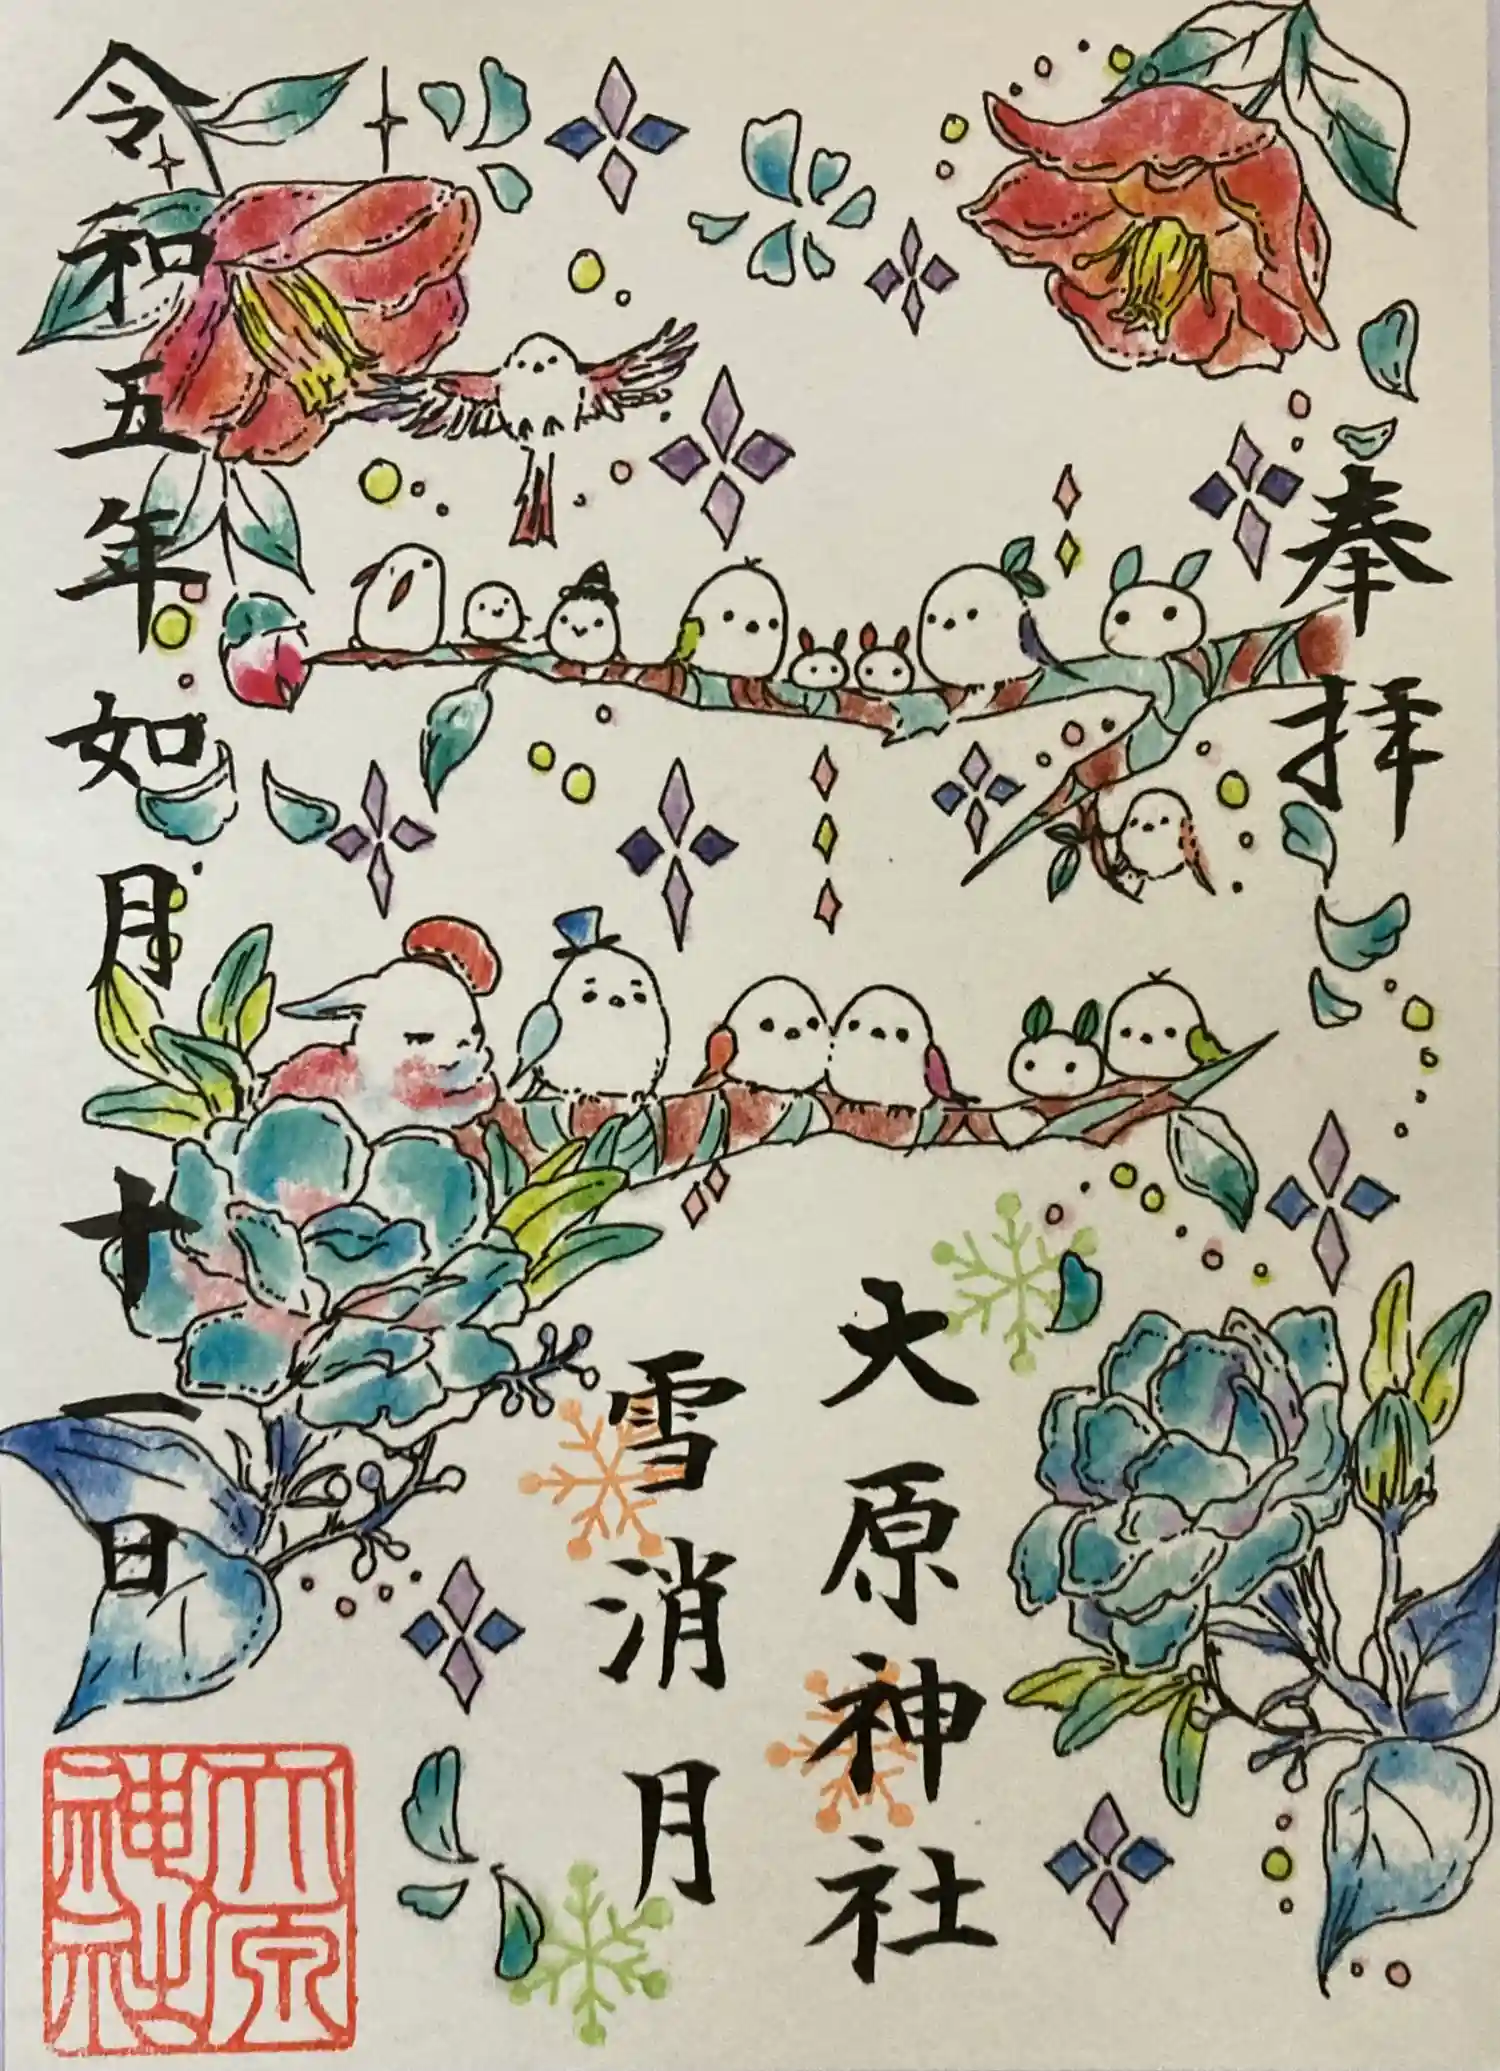 奉拝
大原神社
雪消月
令和五年如月十一日
大原神社